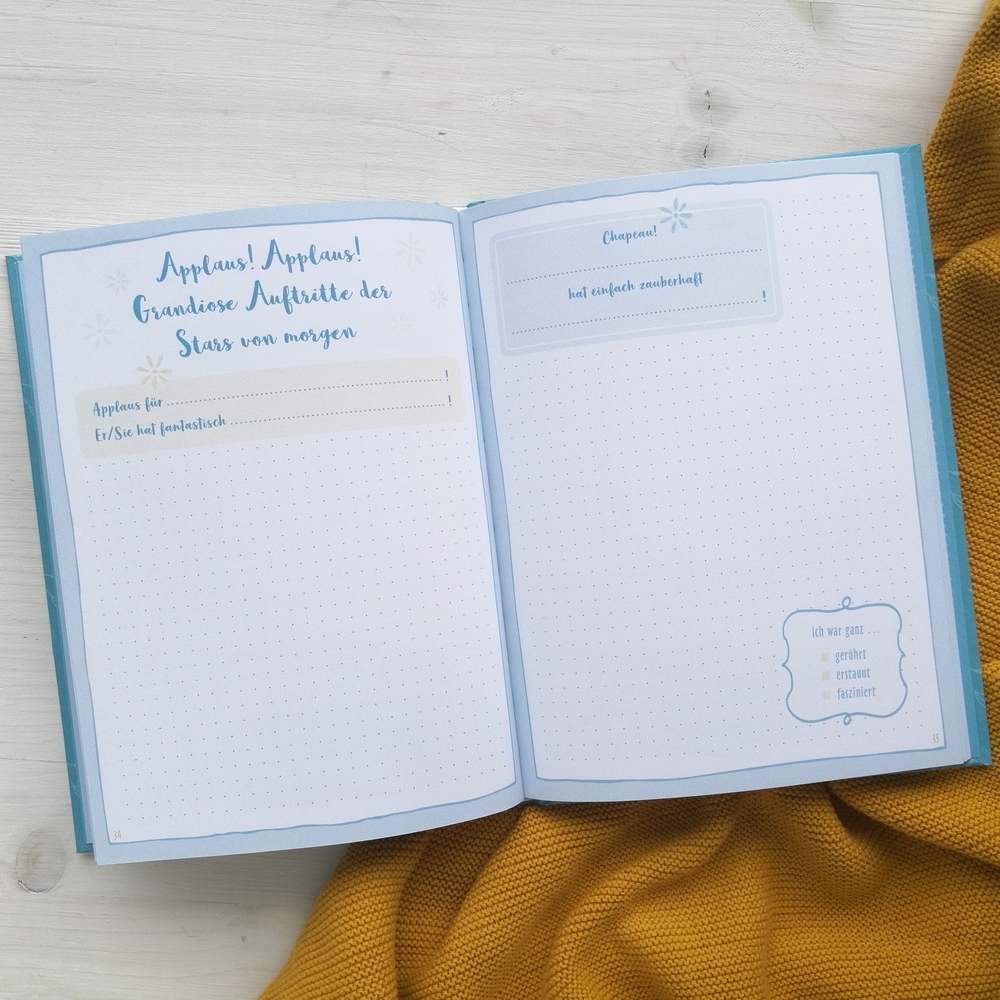 Applaus! Applaus!
Grandiose Auftritte der
Stars von morgen
Applaus für ........................................ !
Er/Sie hat fantastisch ........................................ !
34
Chapeau!
........................................
hat einfach zauberhaft
........................................ !
Ich war ganz ...
gerührt
erstaunt
fasziniert
35